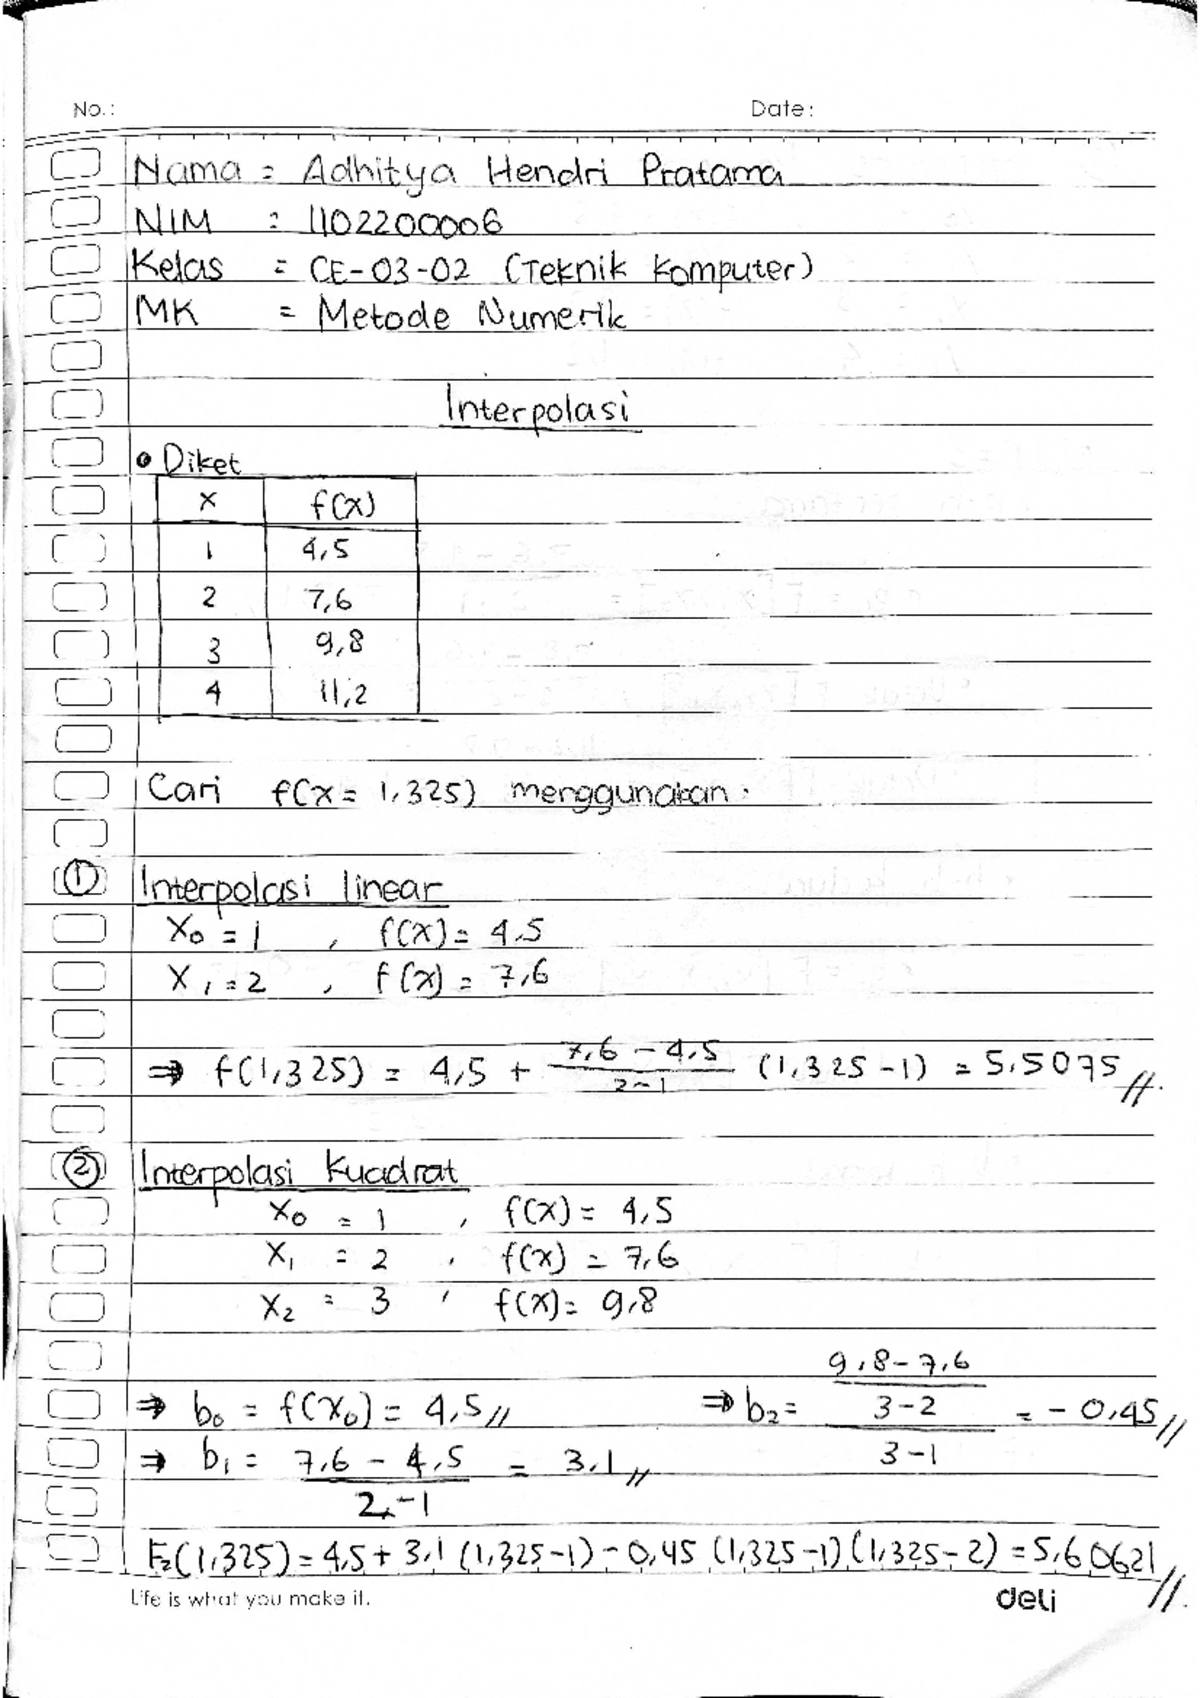 No.: Date:
Nama = Adhitya Hendri Pratama
NIM = 1102200006
Kelas = CE-03-02 (Teknik Komputer)
MK = Metode Numerik
Interpolasi
• Diket
x f(x)
1 4,5
2 7,6
3 9,8
4 11,2
Cari f(x = 1,325) menggunakan :
① Interpolasi linear
X₀ = 1 , f(x) = 4,5
X₁ = 2 , f(x) = 7,6
⇒ f(1,325) = 4,5 + (7,6 - 4,5)/(2-1) (1,325 - 1) = 5,5075 //.
② Interpolasi Kuadrat
X₀ = 1 , f(x) = 4,5
X₁ = 2 , f(x) = 7,6
X₂ = 3 , f(x) = 9,8
⇒ b₀ = f(x₀) = 4,5 // ⇒ b₂ = ((9,8 - 7,6)/(3-2))/(3-1) = -0,45 //
⇒ b₁ = (7,6 - 4,5)/(2-1) = 3,1 //
F₂(1,325) = 4,5 + 3,1 (1,325-1) - 0,45 (1,325-1) (1,325-2) = 5,60621 //.
Life is what you make it. deli